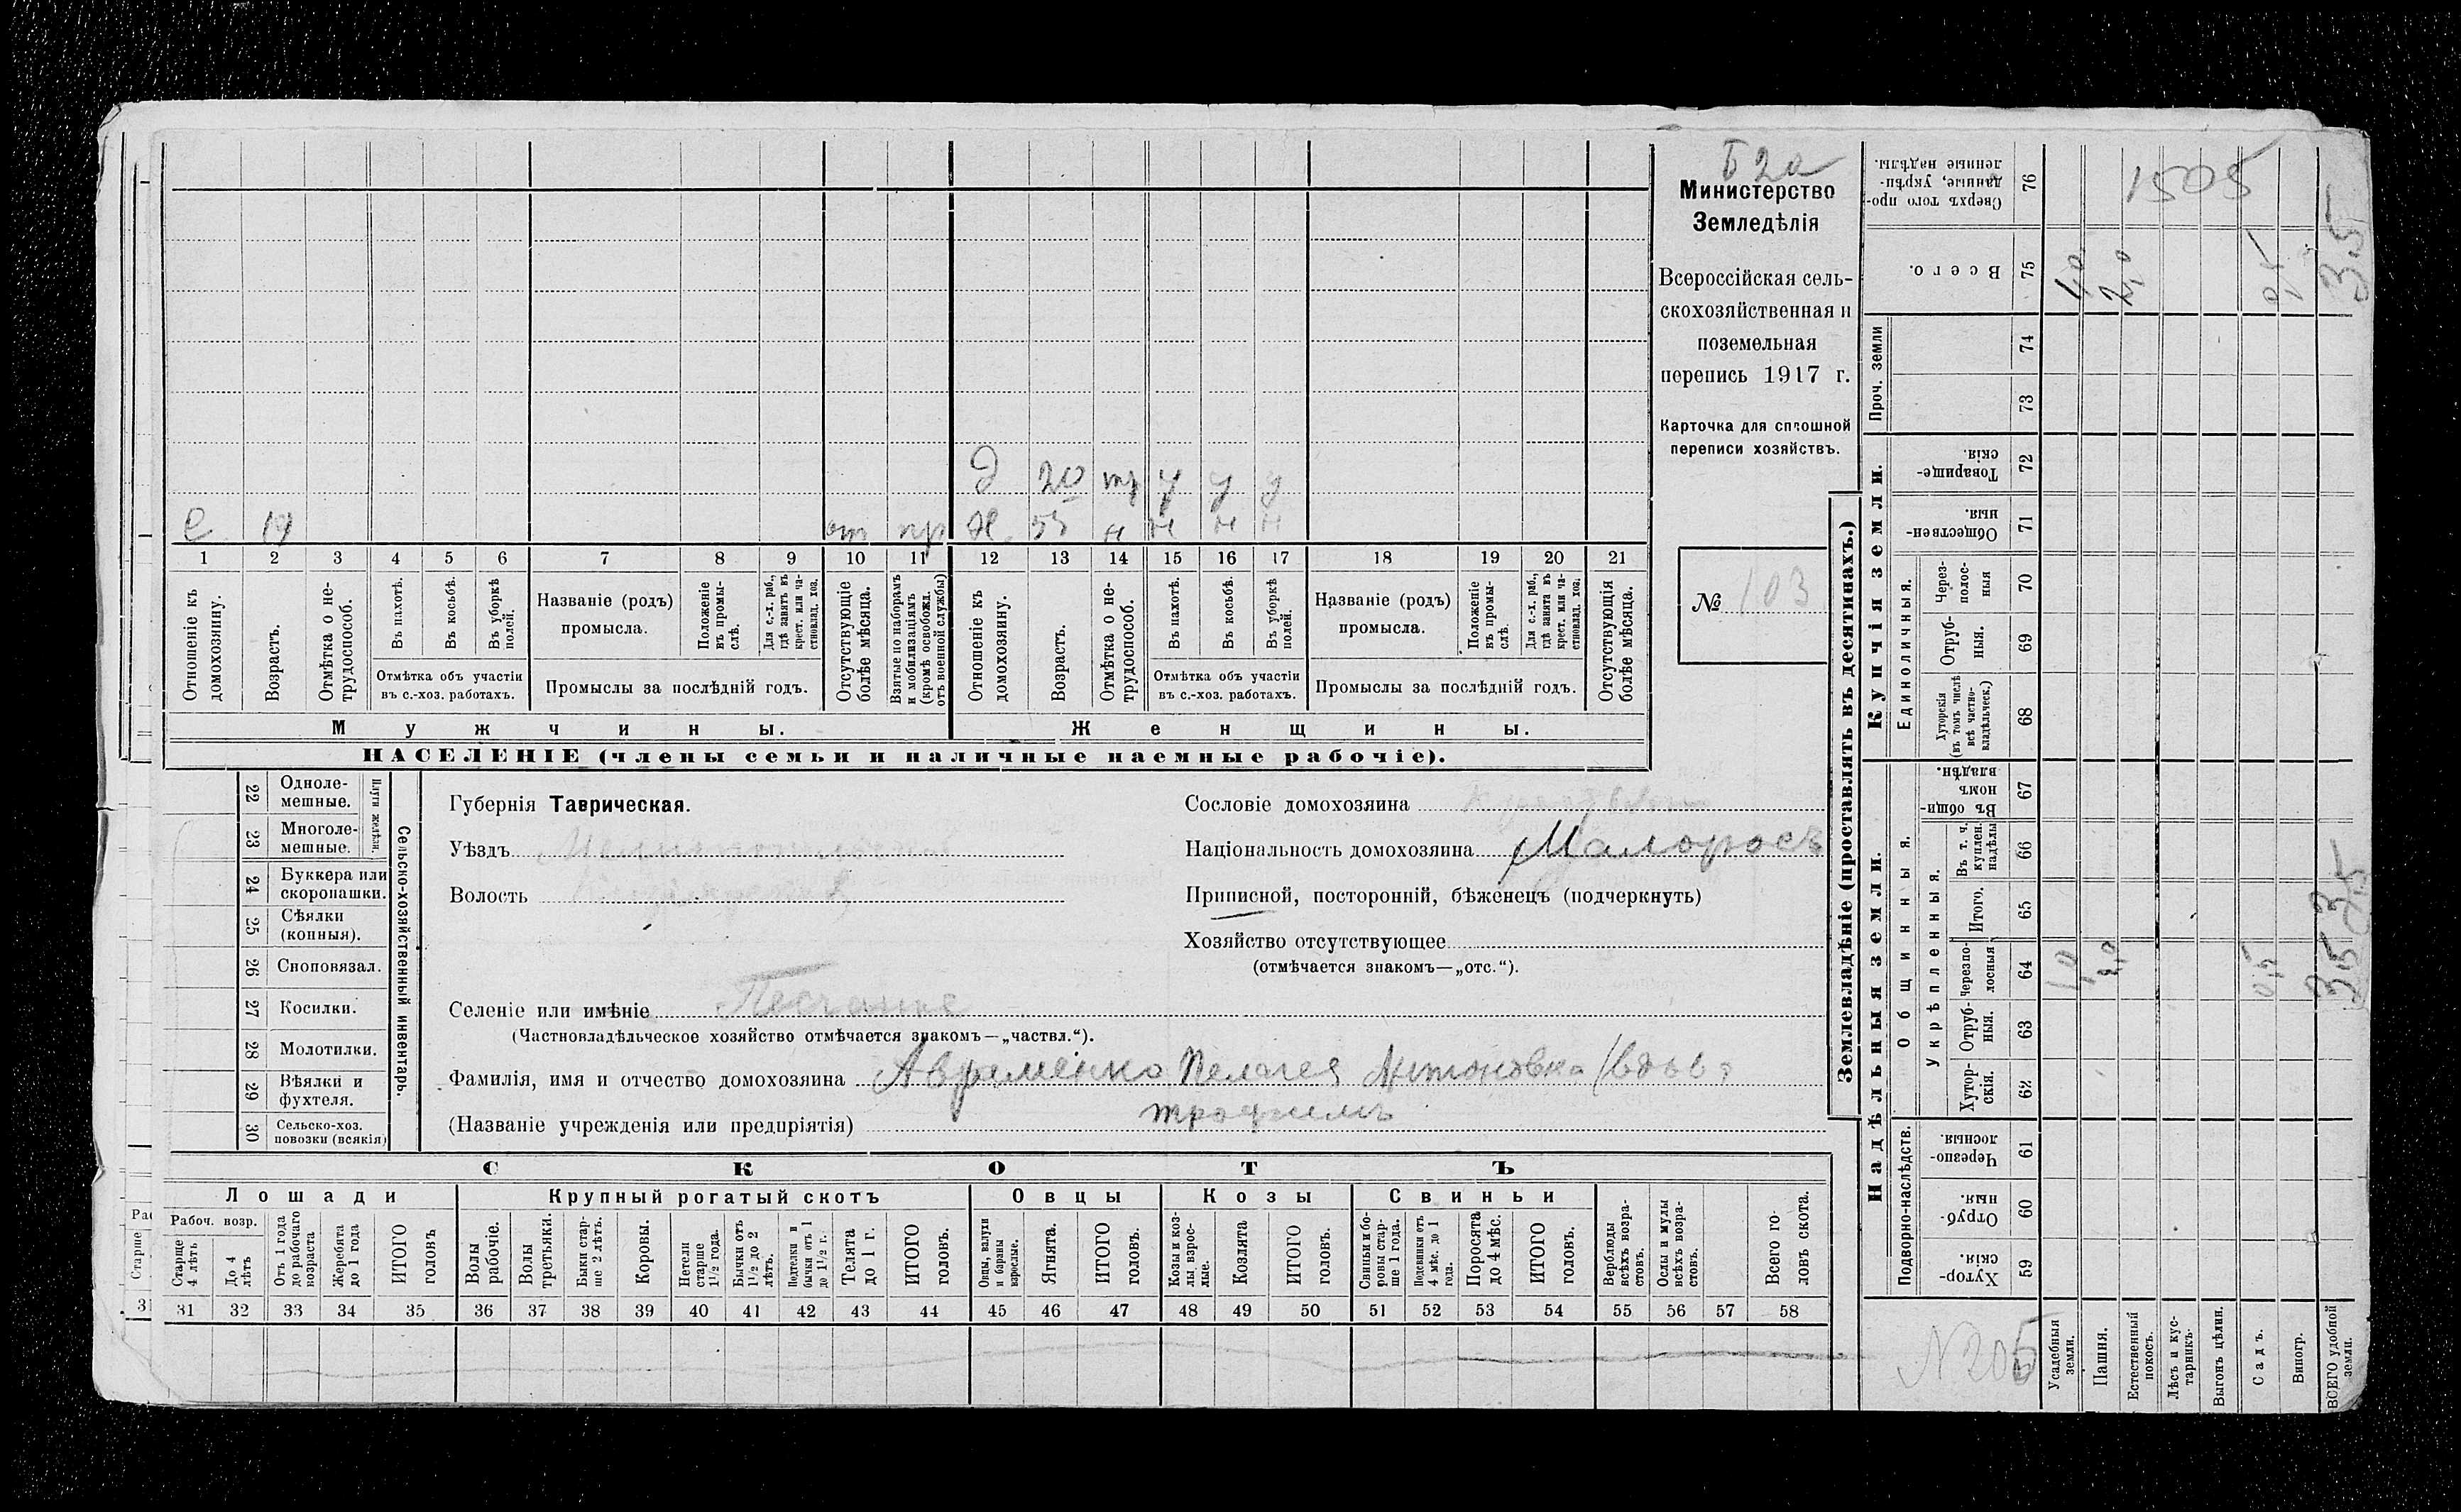 Б 2а
Министерство
Земледѣлія
Всероссійская сель-
скохозяйственная и
поземельная
перепись 1917 г.
Карточка для сплошной
переписи хозяйствъ.
№ 103
Д 20 тр у у у
С 19 от пр Ж 55 н н н н
1 2 3 4 5 6 7 8 9 10 11 12 13 14 15 16 17 18 19 20 21
Отношеніе къ
домохозяину.
Возрастъ.
Отмѣтка о не-
трудоспособ.
Въ пахотѣ.
Въ косьбѣ.
Въ уборкѣ
полей.
Отмѣтка объ участіи
въ с.-хоз. работахъ.
Названіе (родъ)
промысла.
Положеніе
въ промы-
слѣ.
Для с.-х. раб.,
гдѣ занятъ въ
крест. или ча-
стновлад. хоз.
Промыслы за послѣдній годъ.
Отсутствующіе
болѣе мѣсяца.
Взятые по наборамъ
и мобилизаціямъ
(кромѣ освобожд.
отъ военной службы)
Отношеніе къ
домохозяину.
Возрастъ.
Отмѣтка о не-
трудоспособ.
Въ пахотѣ.
Въ косьбѣ.
Въ уборкѣ
полей.
Отмѣтка объ участіи
въ с.-хоз. работахъ.
Названіе (родъ)
промысла.
Положеніе
въ промы-
слѣ.
Для с.-х. раб.,
гдѣ занята въ
крест. или ча-
стновлад. хоз.
Промыслы за послѣдній годъ.
Отсутствующія
болѣе мѣсяца.
Мужчины.
Женщины.
НАСЕЛЕНІЕ (члены семьи и наличные наемные рабочіе).
22 Одноле-
мешные.
23 Многоле-
мешные.
Плуги желѣзн.
24 Буккера или
скоропашки.
25 Сѣялки
(конныя).
26 Сноповязал.
27 Косилки.
28 Молотилки.
29 Вѣялки и
фухтеля.
30 Сельско-хоз.
повозки (всякія)
Сельско-хозяйственный инвентарь.
Губернія Таврическая.
Уѣздъ Мелитопольскій
Волость
Селеніе или имѣніе Песчаное
(Частновладѣльческое хозяйство отмѣчается знакомъ—„частвл.“).
Фамилія, имя и отчество домохозяина Авраменко Пелагея Антоновна (вдова
трофимъ
(Названіе учрежденія или предпріятія)
Сословіе домохозяина
Національность домохозяина Малороссъ
Приписной, посторонній, бѣженецъ (подчеркнуть)
Хозяйство отсутствующее
(отмѣчается знакомъ—„отс.“).
СКОТЪ
Лошади
Крупный рогатый скотъ
Овцы
Козы
Свиньи
Рабоч. возр.
Старше
4 лѣтъ
До 4
лѣтъ
Отъ 1 года
до рабочаго
возраста
Жеребята
до 1 года
ИТОГО
головъ
Волы
рабочіе.
Волы
третьяки.
Быки стар-
ше 2 лѣтъ.
Коровы.
Нетели
старше
1½ года.
Бычки отъ
1½ до 2
лѣтъ.
Подтелки и
бычки отъ 1
до 1½ г.
Телята
до 1 г.
ИТОГО
головъ.
Овцы, валухи
и бараны
взрослые.
Ягнята.
ИТОГО
головъ.
Козы и коз-
лы взрос-
лые.
Козлята
ИТОГО
головъ.
Свиньи и бо-
ровы стар-
ше 1 года.
Подсвинки отъ
4 мѣс. до 1
года.
Поросята
до 4 мѣс.
ИТОГО
головъ.
Верблюды
всѣхъ возра-
стовъ.
Ослы и мулы
всѣхъ возра-
стовъ.
Всего го-
ловъ скота.
31 32 33 34 35 36 37 38 39 40 41 42 43 44 45 46 47 48 49 50 51 52 53 54 55 56 57 58
Землевладѣніе (проставлять въ десятинахъ.)
Сверхъ того про-
данные, укрѣп-
ленные надѣлы.
76
1505
Всего.
75 4,0 2,0 3,5
Проч. земли
74
73
Купчія земли.
Товарище-
скія.
72
Обществен-
ныя.
71
Единоличныя.
Через-
полос-
ныя
70
Отруб-
ныя.
69
Хуторскія
(въ томъ числѣ
всѣ частно-
владѣльческ.)
68
Надѣльныя земли.
Общинныя.
Въ общи-
номъ
владѣн.
67
Укрѣпленныя.
Въ т. ч.
куплен.
надѣлы
66
Итого.
65
Черезпо-
лосныя
64
Отруб-
ныя.
63
Хутор-
скія.
62
Подворно-наслѣдств.
Черезпо-
лосныя.
61
Отруб-
ныя.
60
Хутор-
скія.
59
N 205
Усадебныя
земли.
Пашня.
Естественный
покосъ.
Лѣсъ и кус-
тарникъ.
Выгонъ цѣлин.
Садъ.
Виногр.
ВСЕГО удобной
земли.